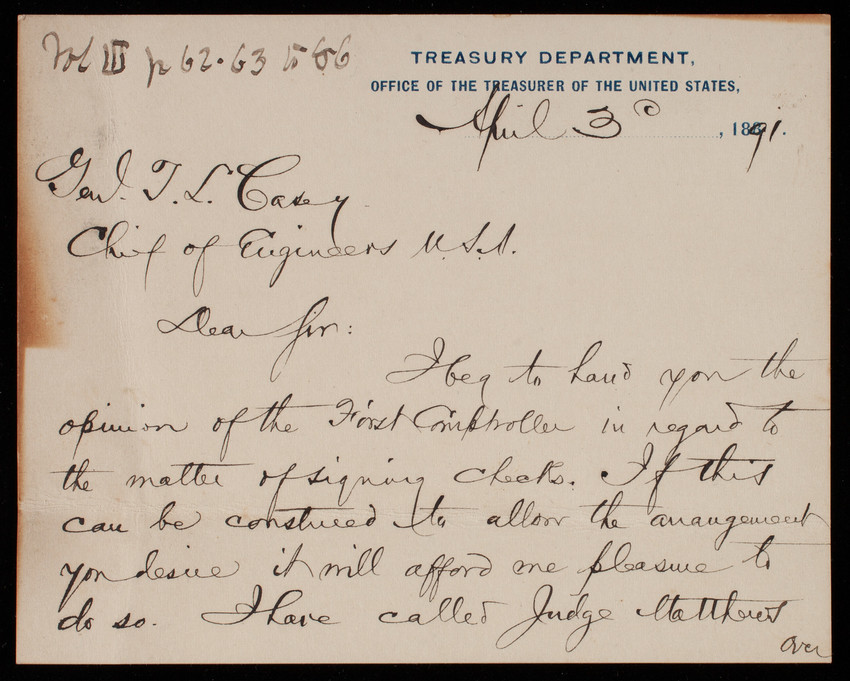 Vol III p 62·63 to 66
TREASURY DEPARTMENT,
OFFICE OF THE TREASURER OF THE UNITED STATES,
April 3d, 1891.
Genl. T. L. Casey
Chief of Engineers U.S.A.
Dear Sir:
I beg to hand you the
opinion of the First Comptroller in regard to
the matter of signing checks. If this
can be construed to allow the arrangement
you desire it will afford me pleasure to
do so. I have called Judge Matthews
over